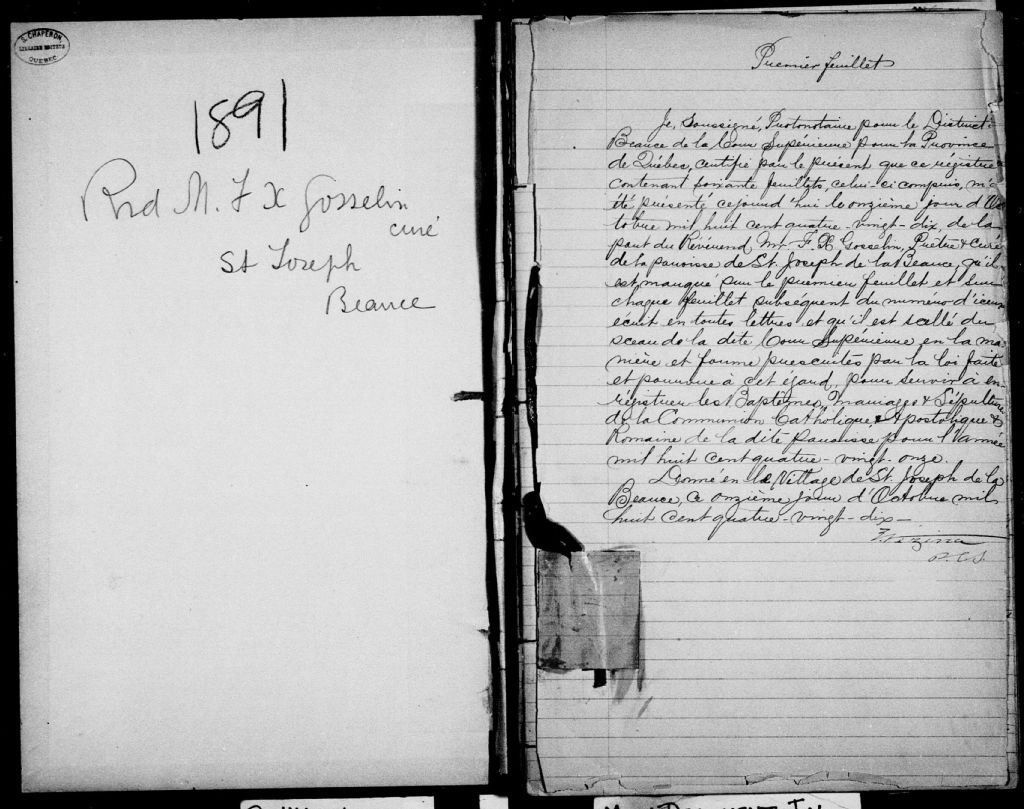 S. CHAPERON,
LIBRAIRE EDITEUR
QUEBEC
1891
Rvd M. F X Gosselin
curé
St Joseph
Beauce
Premier feuillet
Je, soussigné, Protonotaire pour le District
Beauce de la Cour Supérieure pour la Province
de Québec, certifie par le présent que ce régistre
contenant soixante feuillets, celui-ci compris, m'a
été présenté cejourd'hui le onzième jour d'Oc-
tobre mil huit cent quatre-vingt-dix, de la
part du Révérend Mr. F. X. Gosselin, Prêtre & Curé
de la paroisse de St. Joseph de la Beauce, qu'il
est marqué sur le premier feuillet et sur
chaque feuillet subséquent du numéro d'iceux
écrit en toutes lettres et qu'il est scellé du
sceau de la dite Cour Supérieure en la ma-
nière et forme prescrites par la loi faite
et pourvue à cet égard, pour servir à en-
régistrer les Baptêmes, Mariages & Sépultures
de la Communion Catholique, Apostolique &
Romaine de la dite paroisse pour l'année
mil huit cent quatre-vingt-onze.
Donné en le Village de St. Joseph de la
Beauce, ce onzième jour d'Octobre mil
huit cent quatre-vingt-dix—
Vézina
P. C. S.